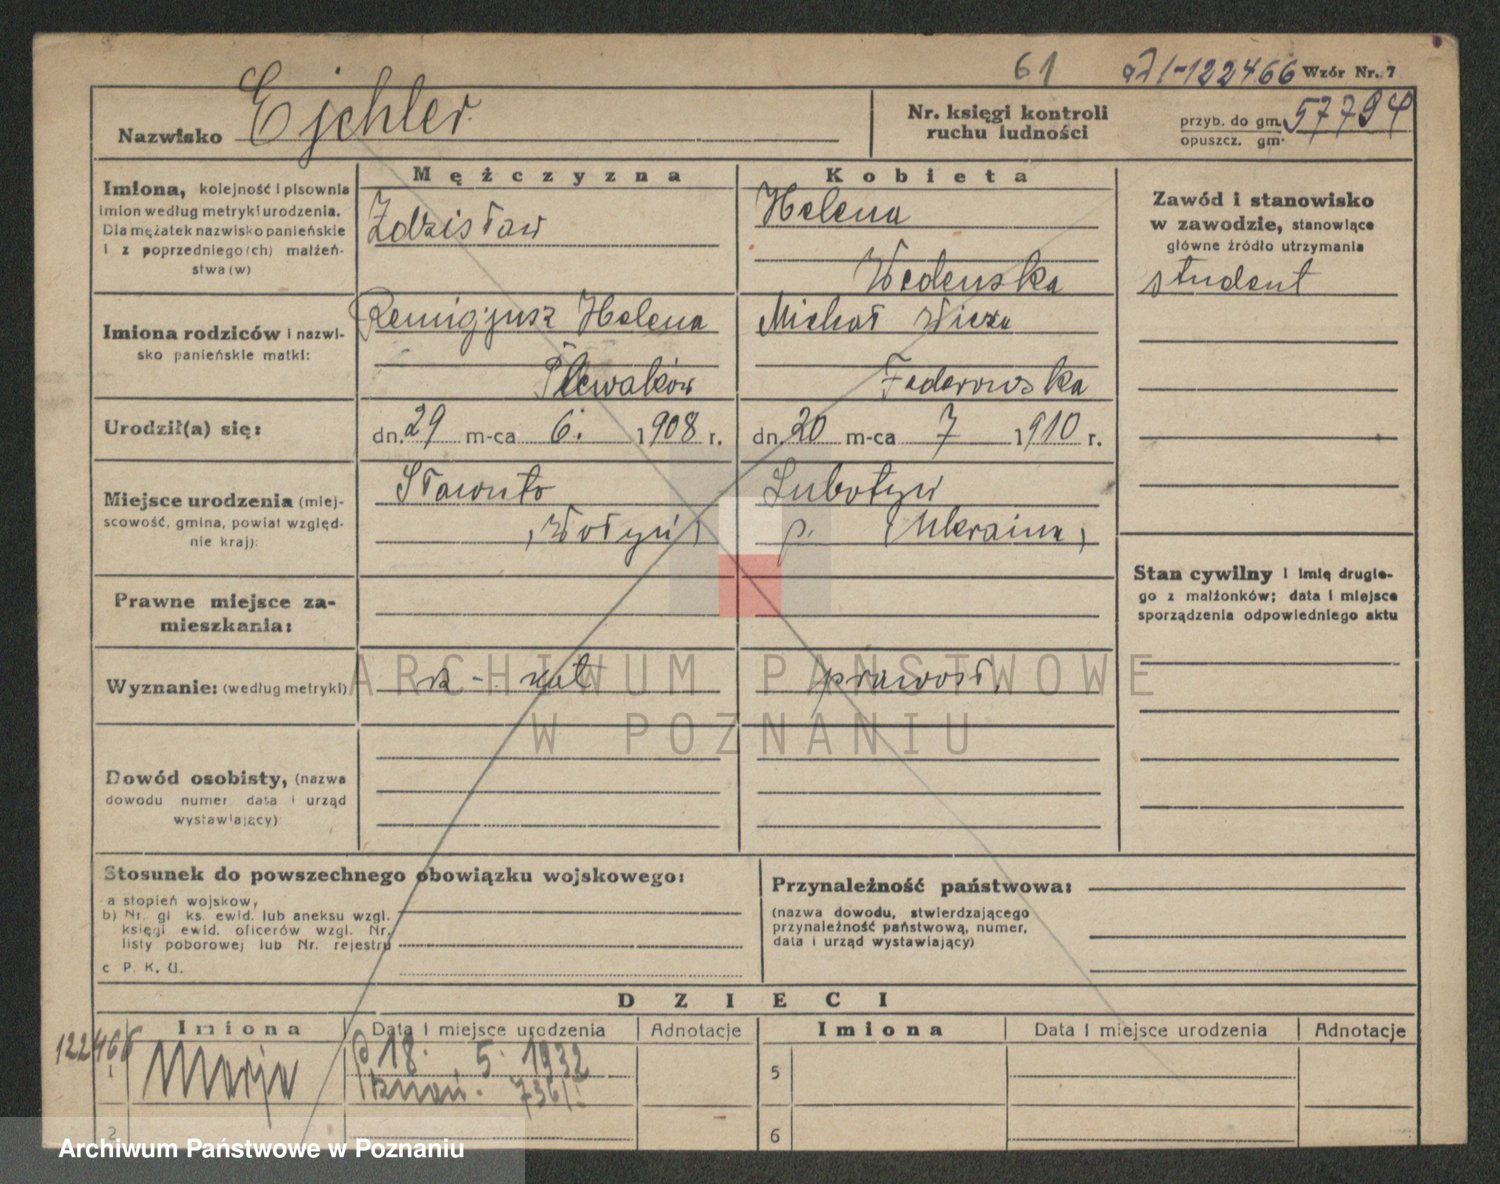 61
Wzór Nr. 7
Nazwisko Ejchler
Nr. księgi kontroli
ruchu ludności
przyb. do gm. 57794
opuszcz. gm.
Mężczyzna
Kobieta
Imiona, kolejność i pisownia
imion według metryki urodzenia.
Dla mężatek nazwisko panieńskie
i z poprzedniego(ch) małżeń-
stwa(w)
Zdzisław
Helena
Wedenska
Zawód i stanowisko
w zawodzie, stanowiące
główne źródło utrzymania
student
Imiona rodziców i nazwi-
sko panieńskie matki:
Remigjusz Helena
Plewaków
Michał
Fedorowska
Urodził(a) się:
dn. 29 m-ca 6. 1908 r.
dn. 20 m-ca 7 1910 r.
Miejsce urodzenia (miej-
scowość, gmina, powiat względ-
nie kraj):
Sławuto
(Wołyń)
Lubotyn
p. (Ukraina)
Stan cywilny i imię drugie-
go z małżonków; data i miejsce
sporządzenia odpowiedniego aktu
Prawne miejsce za-
mieszkania:
Wyznanie: (według metryki)
rz - kat
prawosł.
ARCHIWUM PAŃSTWOWE
W POZNANIU
Dowód osobisty, (nazwa
dowodu numer data i urząd
wystawiający)
Stosunek do powszechnego obowiązku wojskowego:
a stopień wojskow,
b) Nr. gł ks. ewid. lub aneksu wzgl.
księgi ewid. oficerów wzgl. Nr.
listy poborowej lub Nr. rejestru
c P. K. U.
Przynależność państwowa:
(nazwa dowodu, stwierdzającego
przynależność państwową, numer,
data i urząd wystawiający)
DZIECI
Imiona
Data i miejsce urodzenia
Adnotacje
Imiona
Data i miejsce urodzenia
Adnotacje
122466
1
Marja
18. 5. 1932
Poznań. 736/I
5
2
6
Archiwum Państwowe w Poznaniu